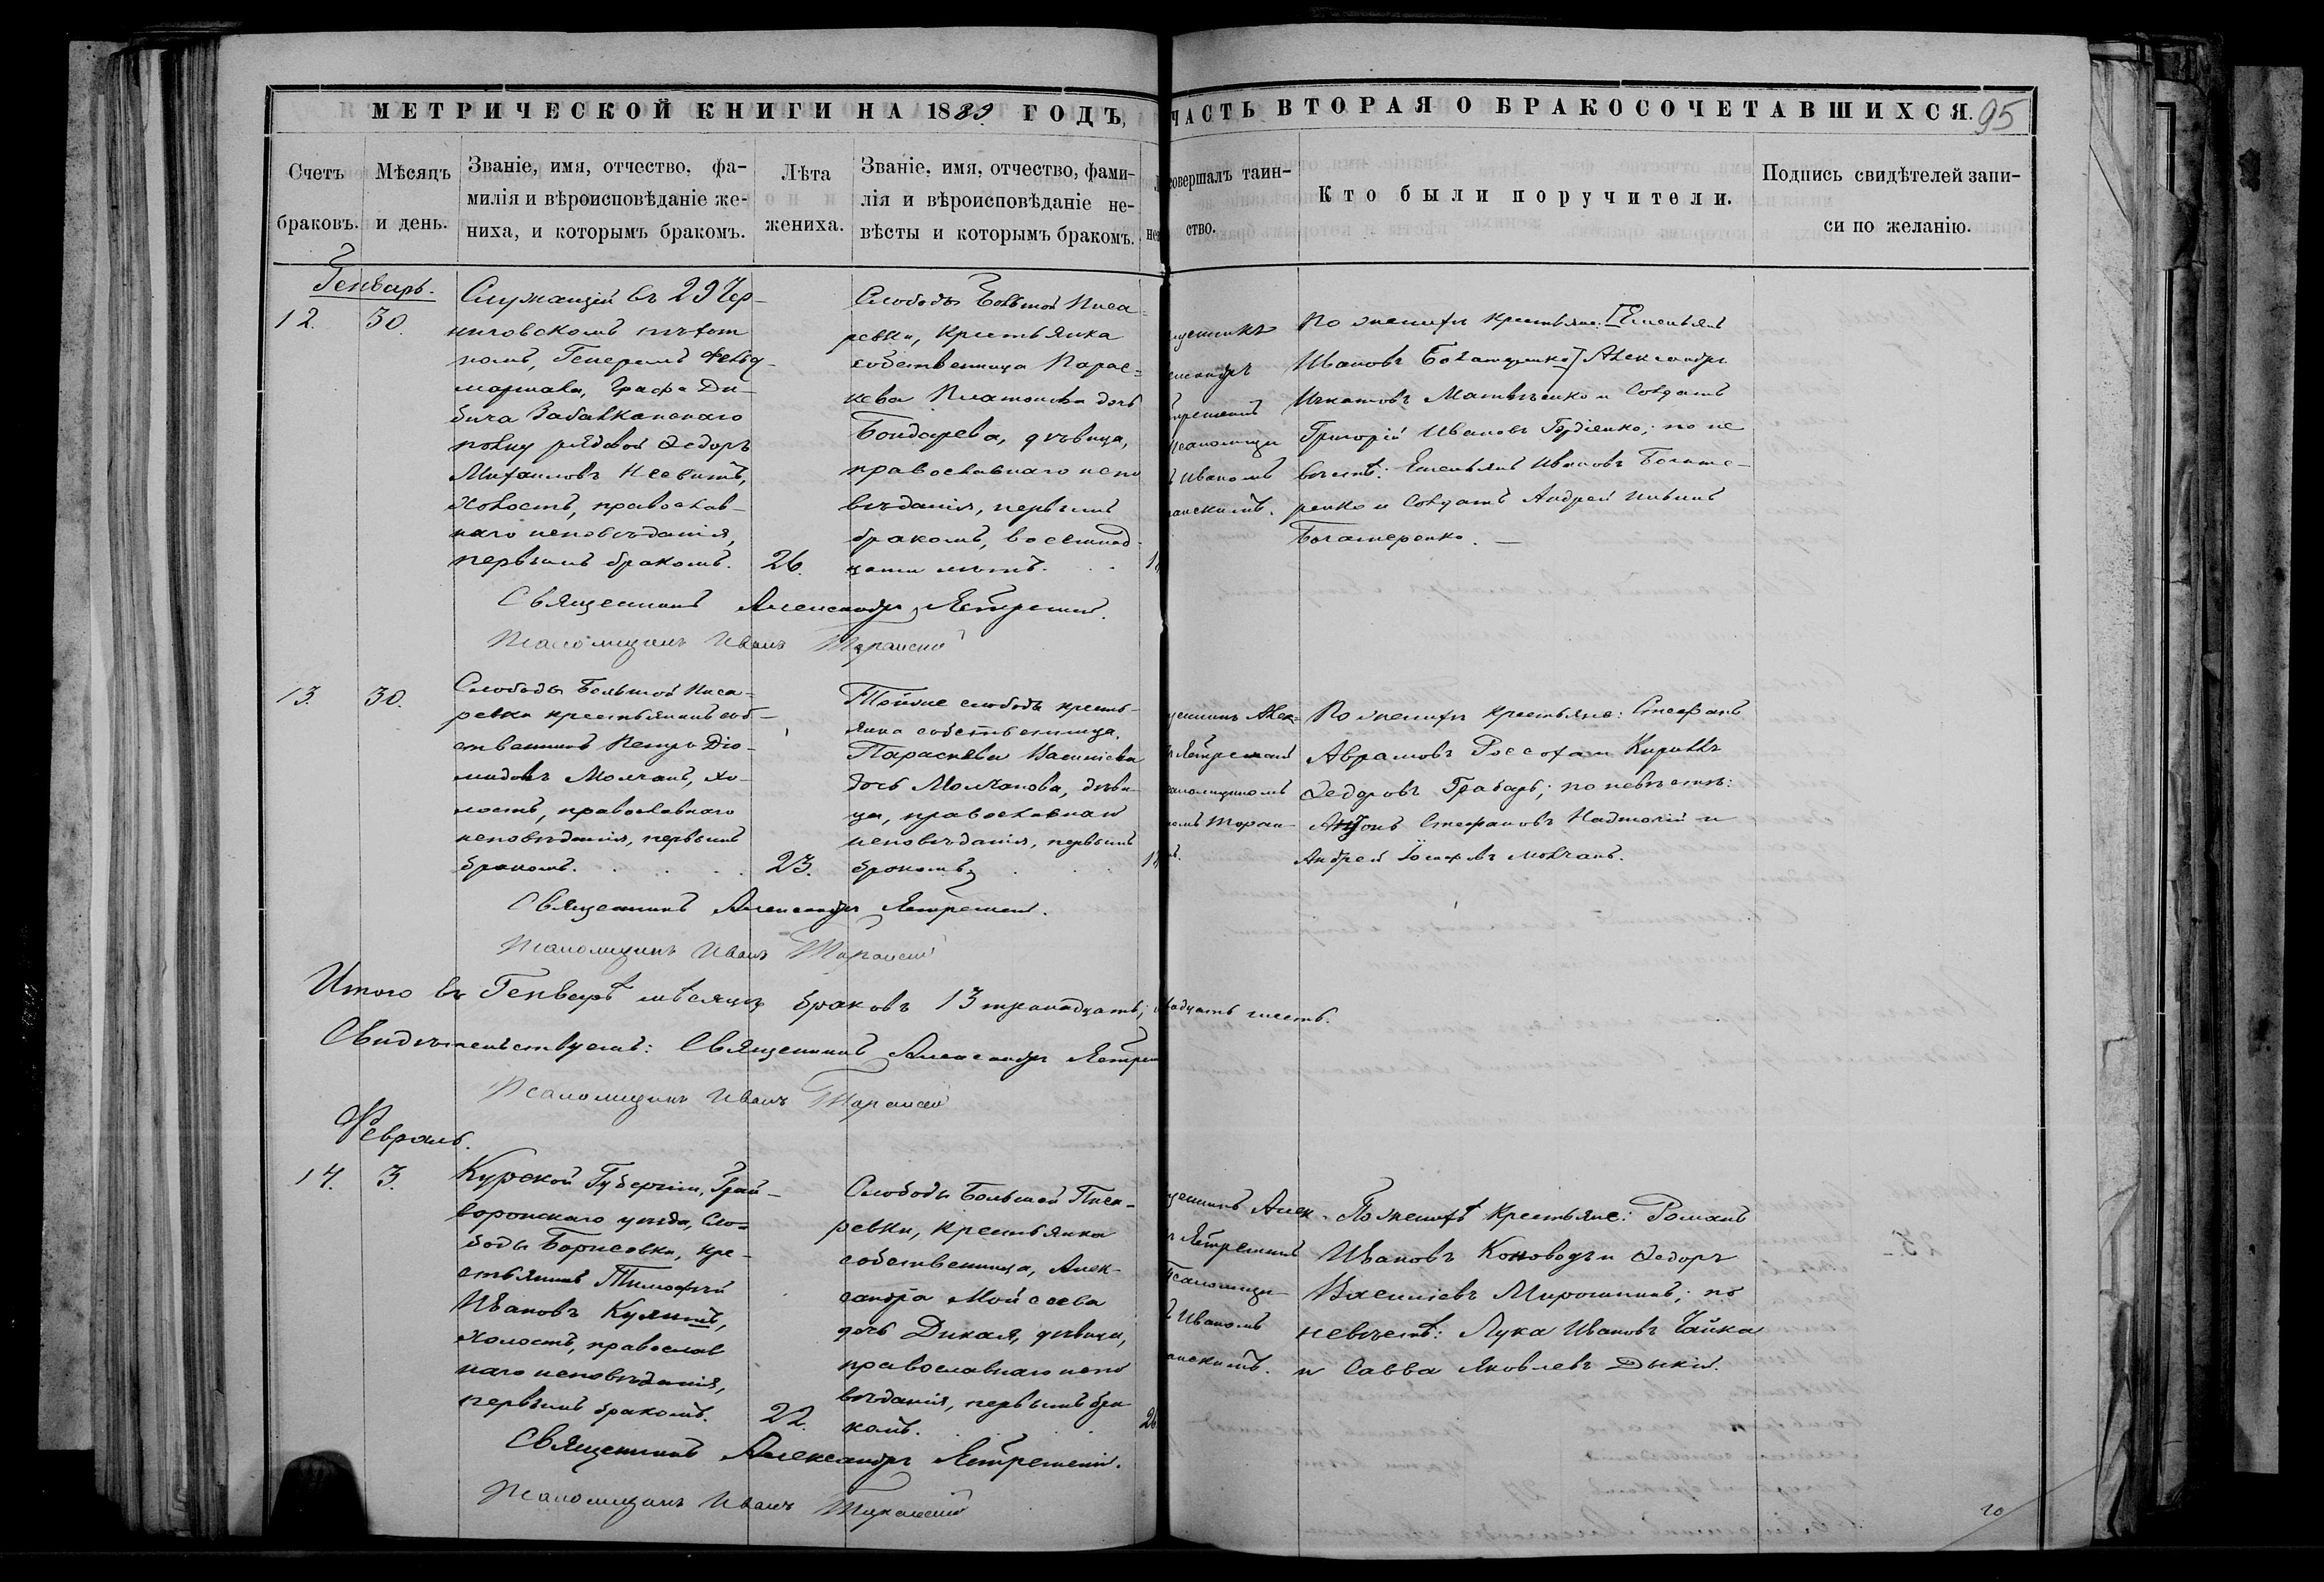 МЕТРИЧЕСКОЙ КНИГИ НА 1889 ГОДЪ,
ЧАСТЬ ВТОРАЯ О БРАКОСОЧЕТАВШИХСЯ. 95
Счетъ браковъ.
Мѣсяцъ и день.
Званіе, имя, отчество, фа-
милія и вѣроисповѣданіе же-
ниха, и которымъ бракомъ.
Лѣта
жениха.
Званіе, имя, отчество, фами-
лія и вѣроисповѣданіе не-
вѣсты и которымъ бракомъ.
совершалъ таин-
ство.
Кто были поручители.
Подпись свидѣтелей запи-
си по желанію.
Генварь.
12. 30.
Служащій въ 29 Чер-
ниговскомъ пѣхот
номъ, Генералъ Фельд-
маршала, Графа Ди-
бича Забалканскаго
полку рядовой Федоръ
Михаиловъ
холостъ, православ-
наго исповѣданія,
первымъ бракомъ. 26.
Слободы Большой Писа-
ревки, крестьянка
собственница Парас-
кева Платонова дочь
Бондарева, дѣвица,
православнаго испо
вѣданія, первымъ
бракомъ, восемнад-
цати лѣтъ.
Ивановъ
По женихѣ крестьяне: [Емельянъ
Ивановъ Богатыренко] Александръ
Матвѣенко и Солдатъ
Григорій Ивановъ Гордіенко; по не
вѣстѣ: Емельянъ Ивановъ Богате-
ренко и Солдатъ Андрей
Богатеренко. —
Священникъ Александръ Ястремскій.
Псаломщикъ Иванъ Торанскій
13. 30.
Слободы Большой Писа-
ревки крестьянинъ соб-
ственникъ Петръ Дio-
мидовъ Молчанъ, хо-
лостъ, православнаго
исповѣданія, первымъ
бракомъ. 23.
Тойже слободы кресть-
янка собственница,
Параскева Василіева
дочь Молчанова, дѣви-
ца, православнаго
исповѣданія, первымъ
бракомъ
По женихѣ крестьяне: Стефанъ
Авраамовъ Россоха и Кириллъ
Федоровъ Грабарь; по невѣстѣ:
Антонъ Стефановъ и
Андрей Іосифовъ Молчанъ.
Священникъ Александръ Ястремскій.
Псаломщикъ Иванъ Торанскій
Итого въ Генварѣ мѣсяцѣ браковъ 13 тринадцать;
Свидѣтельствуемъ: Священникъ Александръ
Псаломщикъ Иванъ Торанскій
Февраль.
14. 3.
Курской Губерніи, Грай-
воронскаго уѣзда, Сло-
боды Борисовки, кре-
стьянинъ Тимофѣй
Ивановъ
холостъ, православ
наго исповѣданія,
первымъ бракомъ. 22.
Слободы Большой Писа-
ревки, крестьянка
собственница, Алек-
сандра Мойсеева
дочь Дикая, дѣвица,
православнаго испо
вѣданія, первымъ бра
комъ.
По женихѣ крестьяне: Романъ
Ивановъ Коноводъ и Федоръ
Василіевъ Мирошникъ; по
невѣстѣ: Лука Ивановъ Чайка
и Савва Яковлевъ Дикій.
Священникъ Александръ Ястремскій.
Псаломщикъ Иванъ Торанскій